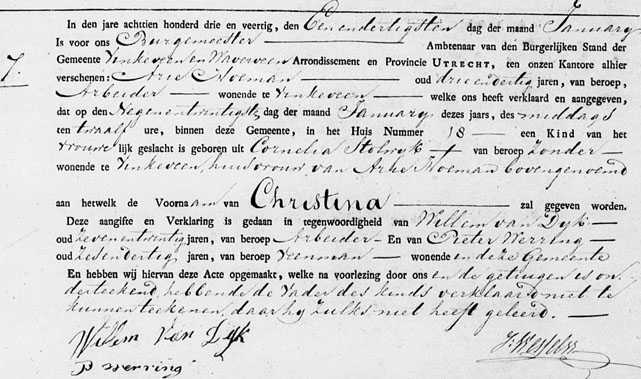 In den jare achttien honderd drie en veertig, den Eenendertigsten dag der maand January
Is voor ons Burgemeester Ambtenaar van den Burgerlijken Stand der
7. Gemeente Vinkeveen en Waverveen Arrondissement en Provincie UTRECHT, ten onzen Kantore alhier
verschenen: Arie Moeman oud drieendertig jaren, van beroep,
Arbeider wonende te Vinkeveen welke ons heeft verklaard en aangegeven,
dat op den Negenentwintigste dag der maand January dezes jaars, des middags
ten twaalf ure, binnen deze Gemeente, in het Huis Nummer 18 een Kind van het
vrouwelijk geslacht is geboren uit Cornelia Stolwyk van beroep Zonder
wonende te Vinkeveen, huisvrouw van Arie Moeman bovengenoemd
aan hetwelk de Voornaam van Christina zal gegeven worden.
Deze aangifte en Verklaring is gedaan in tegenwoordigheid van Willem van Dyk
oud Zevenentwintig jaren, van beroep Arbeider En van Pieter Werring
oud Zesendertig jaren, van beroep Veenman wonende in deze Gemeente
En hebben wij hiervan deze Acte opgemaakt, welke na voorlezing door ons en de getuigen is on
derteekend, hebbende de Vader des kinds verklaard niet te
kunnen teekenen, daar hy zulks niet heeft geleerd.
Willem Van Dyk
P Werring